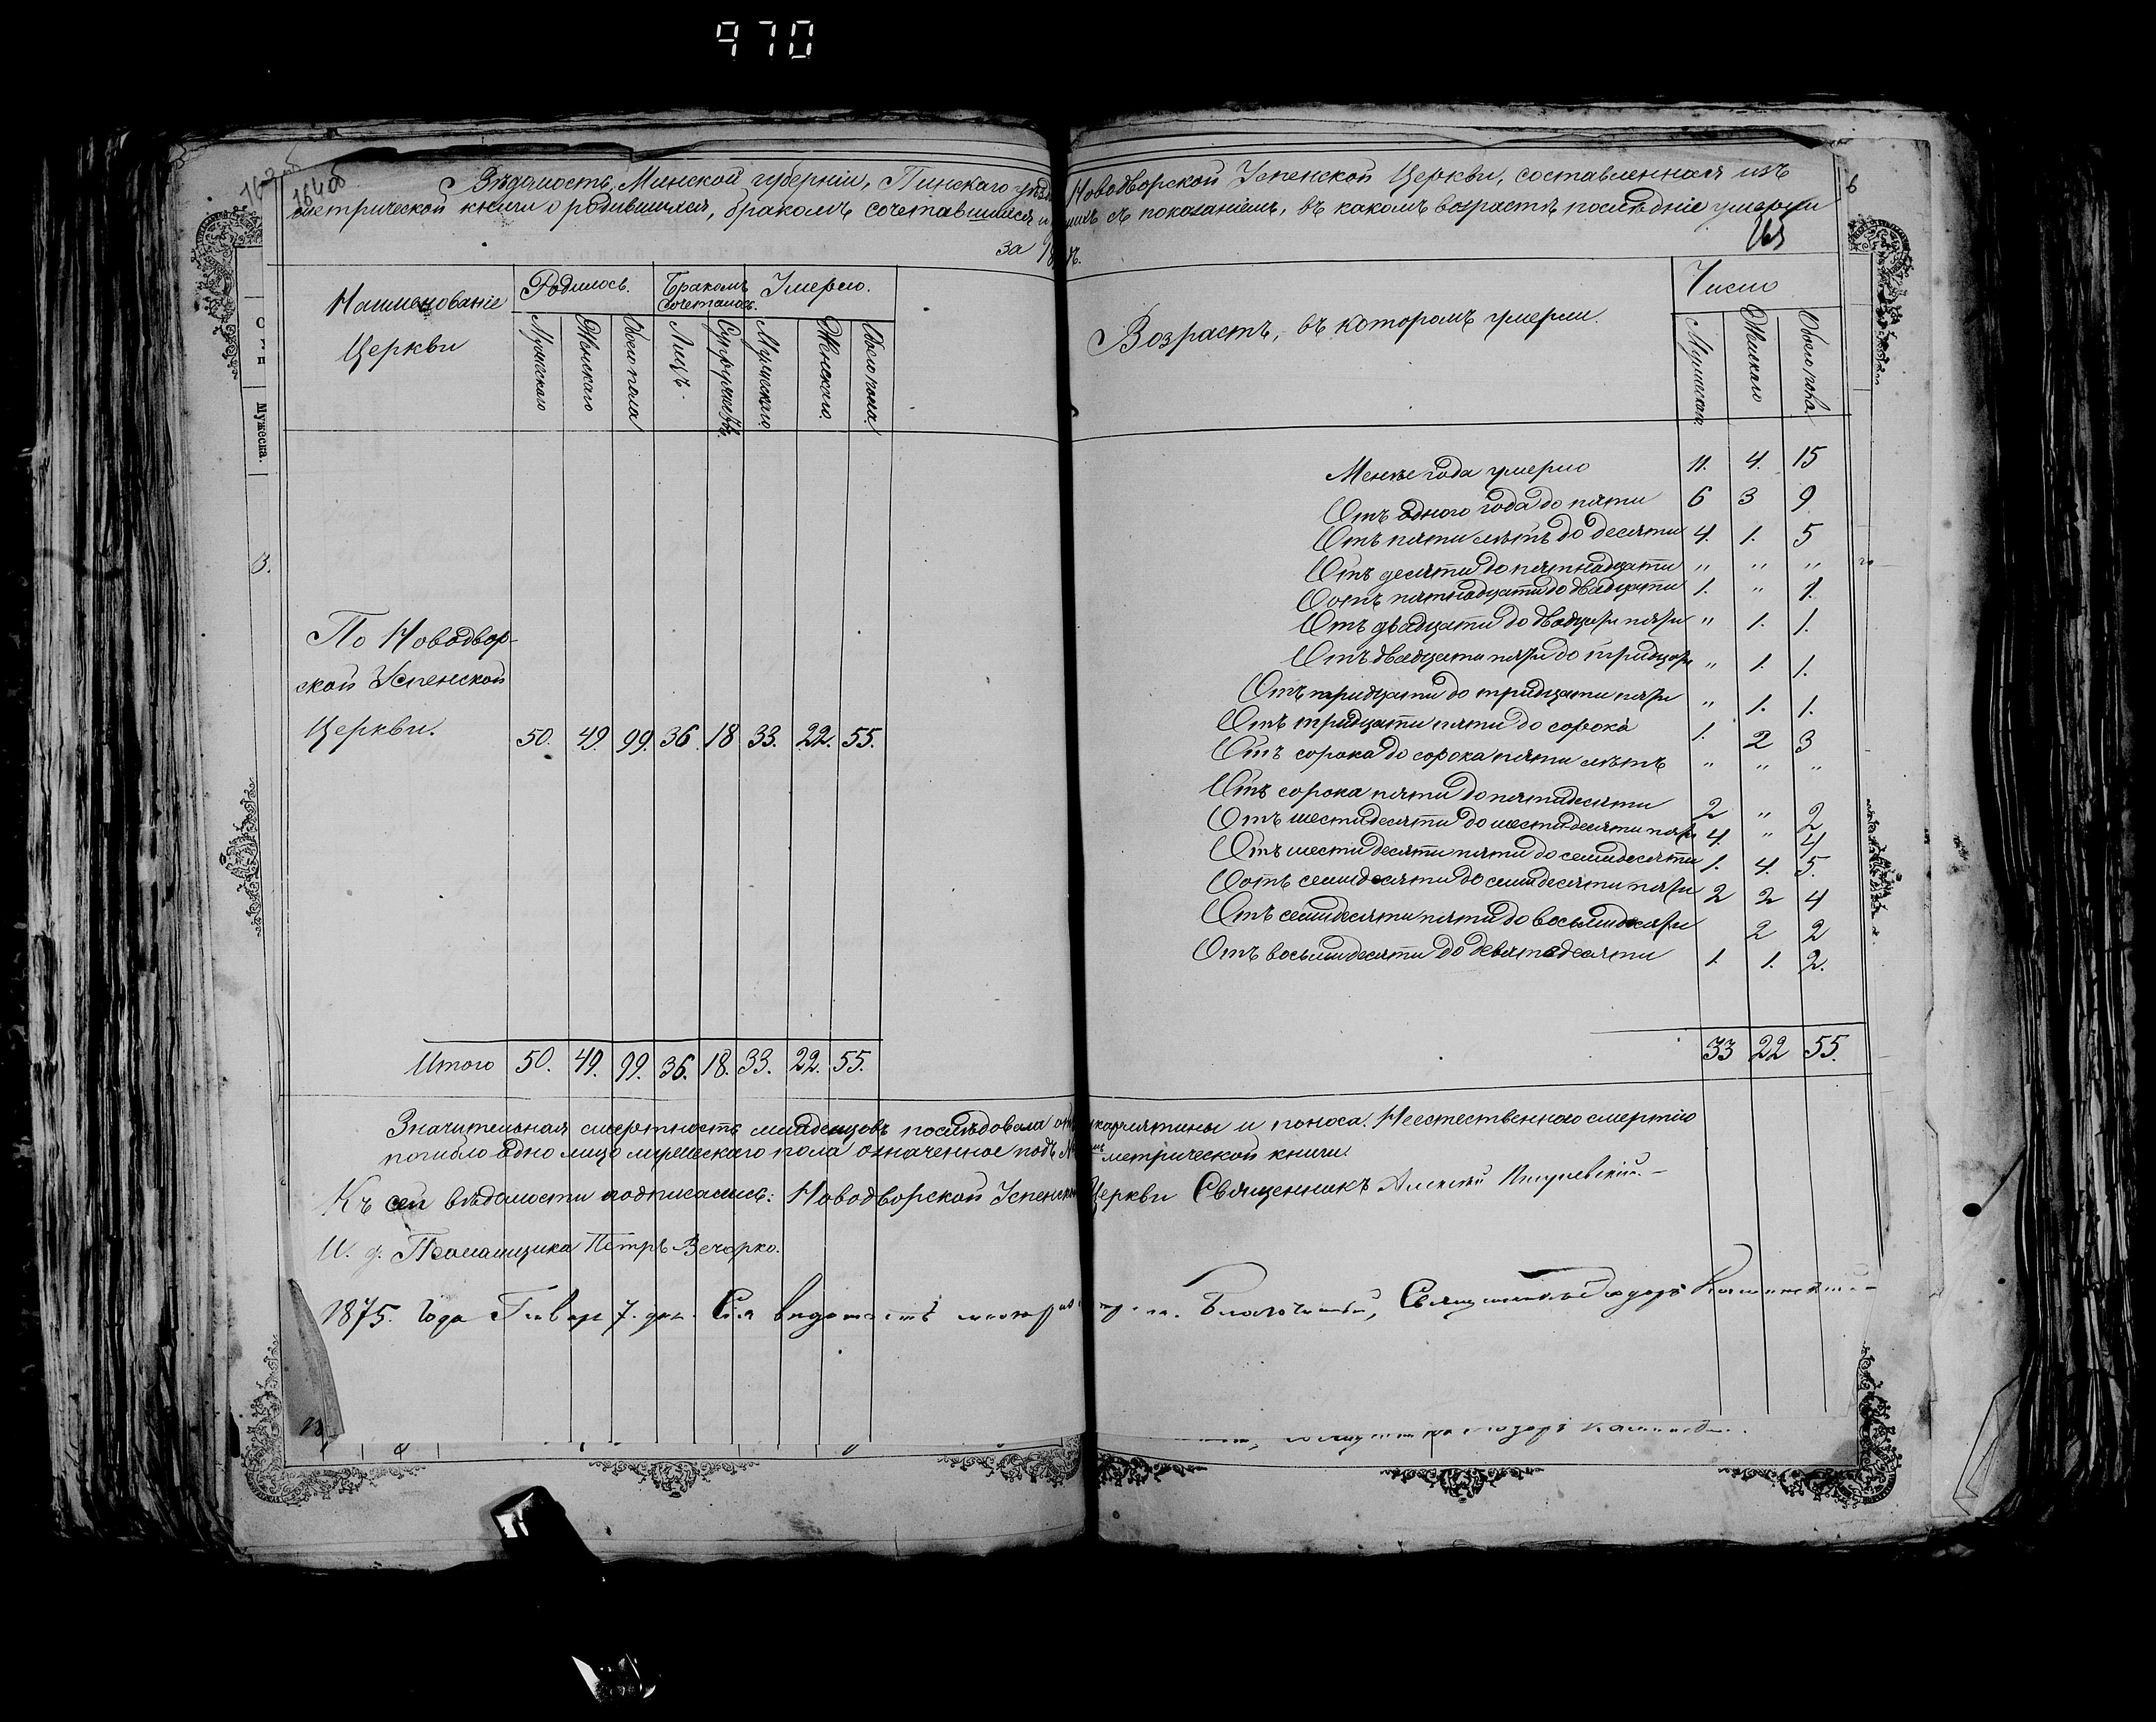 970
164об
Вѣдомость, Минской губерніи, Пинскаго уѣзда Новодворской Успенской Церкви, составленная изъ
метрической книги о родившихся, бракомъ сочетавшихся и съ показаніемъ, въ какомъ возрастѣ послѣдніе умерли
за
165
Наименованіе
Церкви
Родилось.
Бракомъ
сочеталось.
Умерло.
Мужескаго
Женскаго
Обоего пола
Лицъ.
Супружествъ.
Мужескаго.
Женскаго.
Обоего пола.
Возрастъ, въ которомъ умерли.
Число
Мужескаго.
Женскаго
Обоего пола.
Мужеска.
3.
По Новодвор-
ской Успенской
Церкви. 50. 49. 99. 36. 18 33. 22. 55.
Менѣе года умерло 11. 4. 15
Отъ одного года до пяти 6 3 9
Отъ пяти лѣтъ до десяти 4. 1. 5
Отъ десяти до пятнадцати " " "
Отъ пятнадцати до двадцати 1. " 1.
Отъ двадцати до двадцати пяти " 1. 1.
Отъ двадцати пяти до тридцати " 1. 1.
Отъ тридцати до тридцати пяти " 1. 1.
Отъ тридцати пяти до сорока 1. 2 3
Отъ сорока до сорока пяти лѣтъ " " "
Отъ сорока пяти до пятидесяти 2 " 2
Отъ шестидесяти до шестидесяти пяти 4. " 4
Отъ шестидесяти пяти до семидесяти 1. 4. 5.
Отъ семидесяти до семидесяти пяти 2 2 4
Отъ семидесяти пяти до восьмидесяти 2 2
Отъ восьмидесяти до девятидесяти 1. 1. 2.
Итого 50. 49. 99. 36. 18. 33. 22. 55.
33 22 55.
Значительная смертность младенцовъ послѣдовала отъ скарлятины и поноса. Неестественною смертію
погибло одно лицо мужескаго пола означенное подъ № метрической книги.
Къ сей вѣдомости подписались: Новодворской Успенской Церкви Священникъ Алексій
И. д. Псаломщика Петръ Вечорко.
1875. Года Январ 7. дня. Сія вѣдомость Благочинный, Священникъ Ѳеодоръ